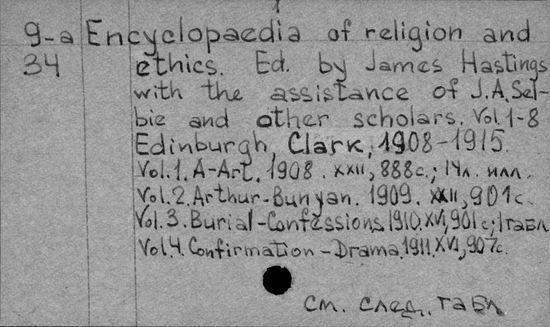 9-a Encyclopaedia of religion and
34 ethics. Ed. by James Hastings
with the assistance of J.A. Sel-
bie and other scholars. Vol. 1-8
Edinburgh, Clark, 1908-1915.
Vol. 1. A-Art. 1908. XXII, 888с.; 14л. илл.
Vol. 2. Arthur-Bunyan. 1909. XXII, 901с.
Vol. 3. Burial-Confessions 1910. XVI, 901с; 1 табл
Vol. 4. Confirmation - Drama. 1911. XVI, 907с.
См. след. табл